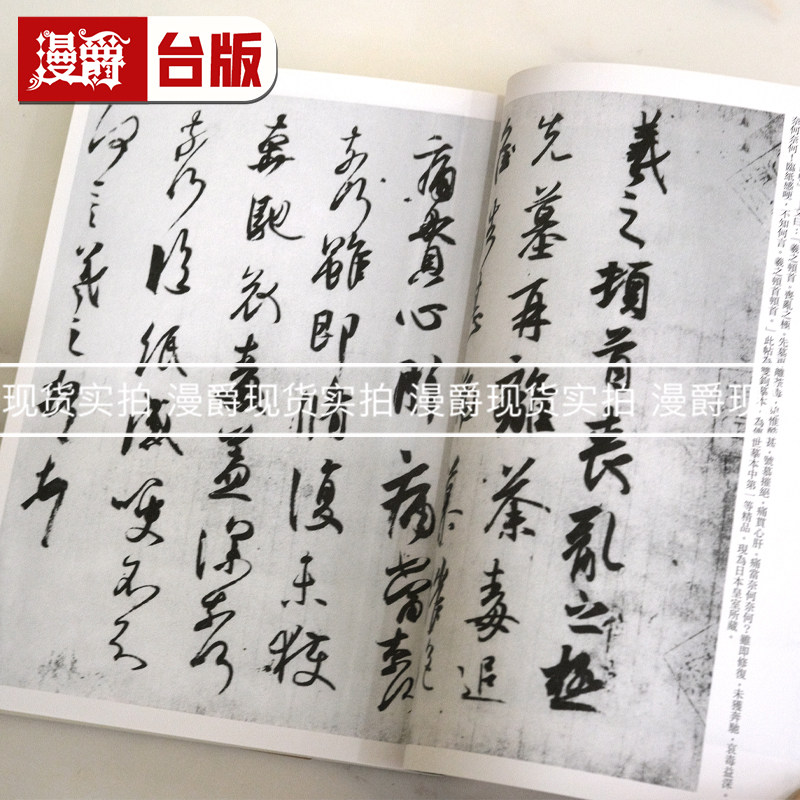 漫爵 台版
奈何奈何!臨紙感哽,不知何言。羲之頓首頓首。」此帖為雙鉤摹本,為傳世摹本中第一等精品,現為日本皇室所藏。
曰:「羲之頓首。喪亂之極,先墓再離荼毒,追惟酷甚,號慕摧絕,痛貫心肝,痛當奈何奈何?雖即修復,未獲奔馳,哀毒益深,
羲之頓首喪亂之極
先墓再離荼毒追
惟酷甚號慕摧絕
痛貫心肝痛當奈何
奈何雖即脩復未獲
奔馳哀毒益深奈何
奈何臨紙感哽不知
何言羲之頓首
现货实拍 漫爵现货实拍 漫爵现货实拍 漫爵现货